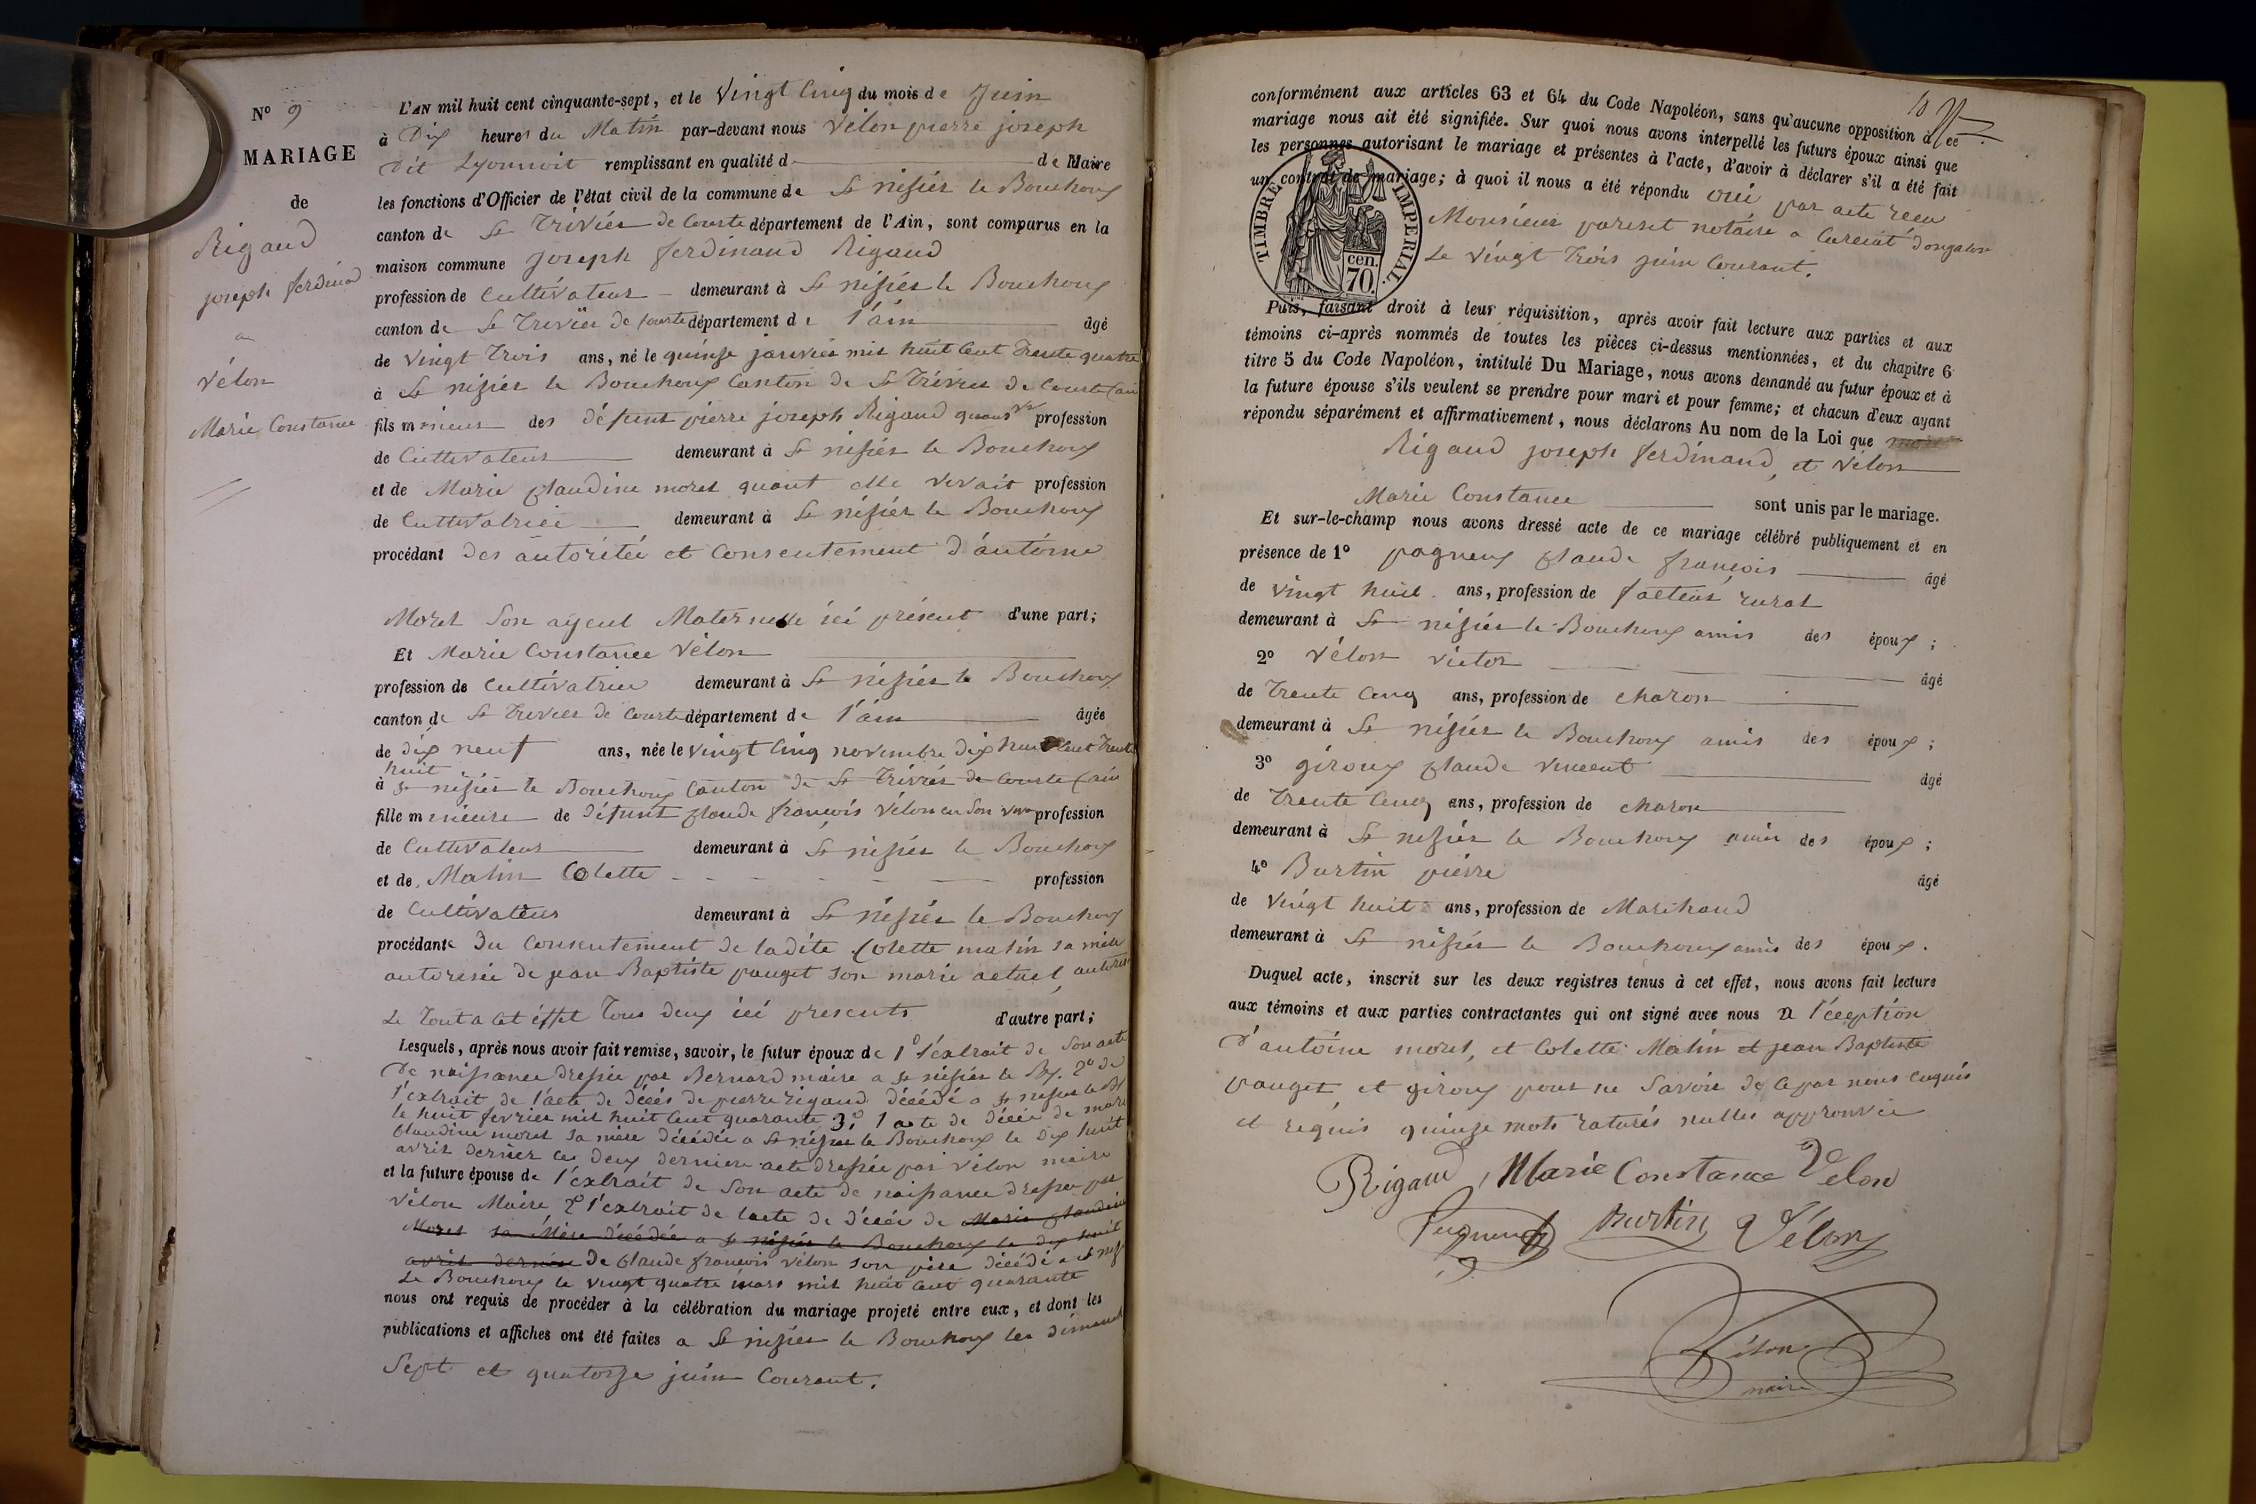 N° 9
MARIAGE
de
Rigaud
joseph ferdinand
a
vélon
Marie Constance
L'AN mil huit cent cinquante-sept, et le vingt Cinq du mois de Juin
à Dix heures du Matin par-devant nous vélon pierre joseph
dit Lyonnoit remplissant en qualité d de Maire
les fonctions d'Officier de l'état civil de la commune de St nizier le Bouchoux
canton de St Triviés de Courte département de l'Ain, sont comparus en la
maison commune joseph ferdinand Rigaud
profession de Cultivateur demeurant à St nizier le Bouchoux
canton de St Trevier de Courte département de l'ain âgé
de vingt trois ans, né le quinze janvier mil huit Cent Trente quatre
à St nizier le Bouchoux Canton de St Trévier de Courte (ain
fils mineur des défunt pierre joseph Rigaud quans vi profession
de Cultivateur demeurant à St nizier le Bouchoux
et de Marie Claudine moret quant elle vivait profession
de Cultivatrice demeurant à St nizier le Bouchoux
procédant des autoritée et Consentement d'antoine
Moret Son ayeul Maternelle ici présent d'une part;
Et Marie Constance Vélon
profession de Cultivatrice demeurant à St nizier le Bouchoux
canton de St Trevier de Courte département de l'ain âgée
de dix neuf ans, née le vingt Cinq novembre dix huit Cent Trente
huit
à St nizier le Bouchoux Canton de St Triviés de Courte (ain
fille mineure de défunt Claude francois Vélon en son viva profession
de Cultivateur demeurant à St nizier le Bouchoux
et de Matin Colette profession
de Cultivateur demeurant à St nizier le Bouchoux
procédante du Consentement de ladite Colette matin sa mère
autorisée de jean Baptiste pauget son marie actuel, autorisé
Le Tout a Cet éffet Tous deux ici presents d'autre part;
Lesquels, après nous avoir fait remise, savoir, le futur époux de 1° l'éxtrait de Son acte
De naissance dressée par Bernard maire a St nizier le Bx. 2° de
l'extrait de l'acte de décés de pierre rigaud décédé a St nizier le Bx
le huit fevrier mil huit Cent quarante 3° l acte de décés de marie
Claudine moret sa mère décédée a St nizier le Bouchoux le dix huit
avril dernier Ces deux derniere acte dressée par vélon maire
et la future épouse de l'éxtrait de Son acte de naissance dressée par
vélon Maire 2° l'extrait de l'acte de décés de Marie Claudine
Moret sa Mère décédée a St nizier le Bouchoux le dix huit
avril dernier de Claude francois vélon son père décédé a St nizi
Le Bouchoux le vingt quatre mars mil huit Cent quarante
nous ont requis de procéder à la célébration du mariage projeté entre eux, et dont les
publications et affiches ont été faites a St nizier le Bouchoux les dimanch
Sept et quatorze juin Courant.
10
conformément aux articles 63 et 64 du Code Napoléon, sans qu'aucune opposition à ce
mariage nous ait été signifiée. Sur quoi nous avons interpellé les futurs époux ainsi que
les personnes autorisant le mariage et présentes à l'acte, d'avoir à déclarer s'il a été fait
un contrat de mariage; à quoi il nous a été répondu oui par acte recu
Monsieur pariset notaire a Curciat dongalon
Le vingt Trois juin Courant.
TIMBRE IMPERIAL.
cen.
70.
Puis, faisant droit à leur réquisition, après avoir fait lecture aux parties et aux
témoins ci-après nommés de toutes les pièces ci-dessus mentionnées, et du chapitre 6
titre 5 du Code Napoléon, intitulé Du Mariage, nous avons demandé au futur époux et à
la future épouse s'ils veulent se prendre pour mari et pour femme; et chacun d'eux ayant
répondu séparément et affirmativement, nous déclarons Au nom de la Loi que
Rigaud joseph ferdinand, et vélon
Marie Constance sont unis par le mariage.
Et sur-le-champ nous avons dressé acte de ce mariage célébré publiquement et en
présence de 1° pagneux Claude francois âgé
de vingt huit ans, profession de facteur rural
demeurant à St nizier le Bouchoux amis des époux;
2° Vélon victor âgé
de Trente Cinq ans, profession de charon
demeurant à St nizier le Bouchoux amis des époux;
3° giroux Claude vincent âgé
de Trente Cinq ans, profession de charon
demeurant à St nizier le Bouchoux amis des époux;
4° Burtin pierre âgé
de vingt huit ans, profession de Marchand
demeurant à St nizier le Bouchoux amis des époux.
Duquel acte, inscrit sur les deux registres tenus à cet effet, nous avons fait lecture
aux témoins et aux parties contractantes qui ont signé avec nous a l'éception
d'antoine moret, et Colette Matin et jean Baptiste
pauget, et giroux pour ne Savoir de Ce par nous enquis
et requis quinze mots raturés nulles approuvée
Rigaud Marie Constance Velon
Pugneux Burtin Vélon
Vélon
maire